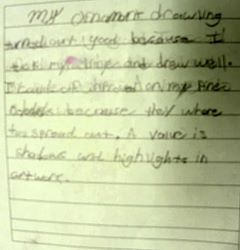 My ornament drawling
turned out good because I
took my time and draw well.
I could of improved on my lines
because they where
to spread out. A value is
shadows and highlights in
artwork.